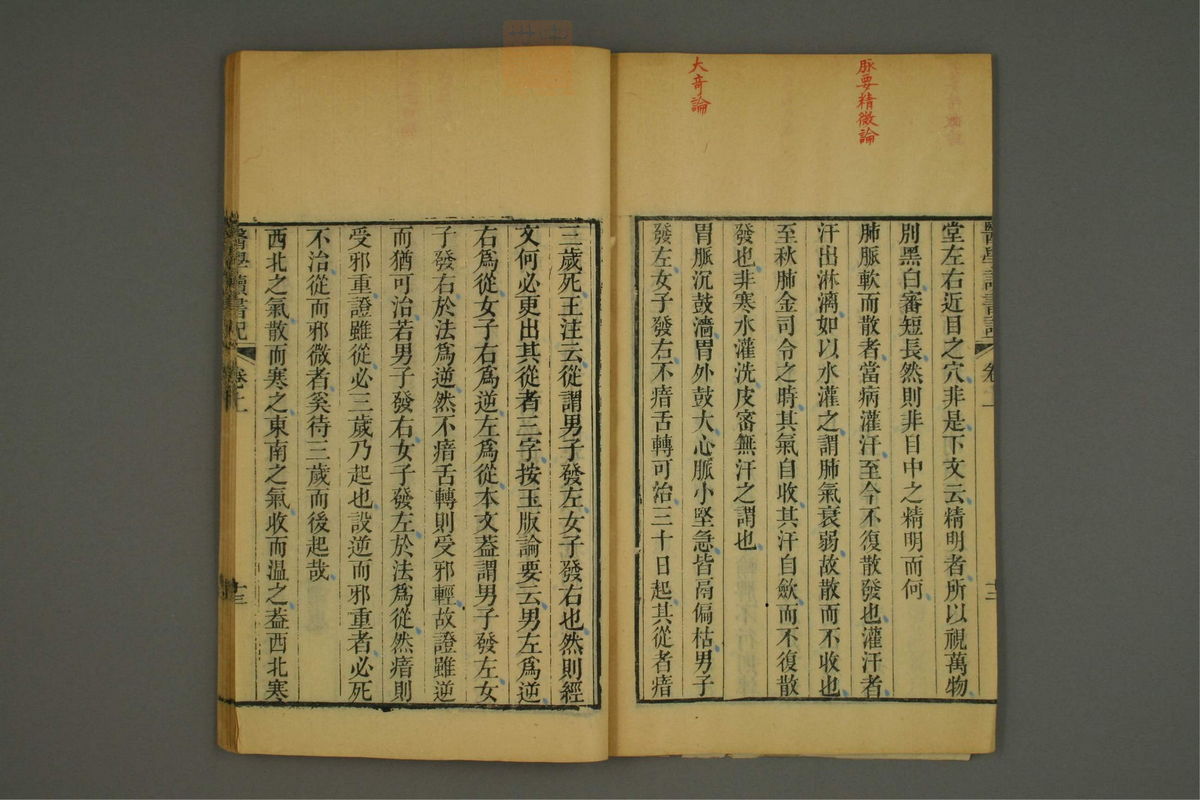 脉要精微論
大奇論
醫學讀書記
堂左右近目之穴非是下文云精明者所以視萬物
別黑白審短長然則非目中之精明而何
肺脈軟而散者當病灌汗至今不復散發也灌汗者
汗出淋漓如以水灌之謂肺氣衰弱故散而不收也
至秋肺金司令之時其氣自收其汗自歛而不復散
發也非寒水灌洗皮審無汗之謂也
胃脈沉鼓濇胃外鼓大心脈小堅急皆鬲偏枯男子
發左女子發右不瘖舌轉可治三十日起其從者瘖
三歲死王注云從謂男子發左女子發右也然則經
文何必更出其從者三字按玉版論要云男左爲逆
右爲從女子右爲逆左爲從本文葢謂男子發左女
子發右於法爲逆然不瘖舌轉則受邪輕故證雖逆
而猶可治若男子發右女子發左於法爲從然瘖則
受邪重證雖從必三歲乃起也設逆而邪重者必死
不治從而邪微者奚待三歲而後起哉
西北之氣散而寒之東南之氣收而溫之葢西北寒
醫學讀書記 卷上 十三